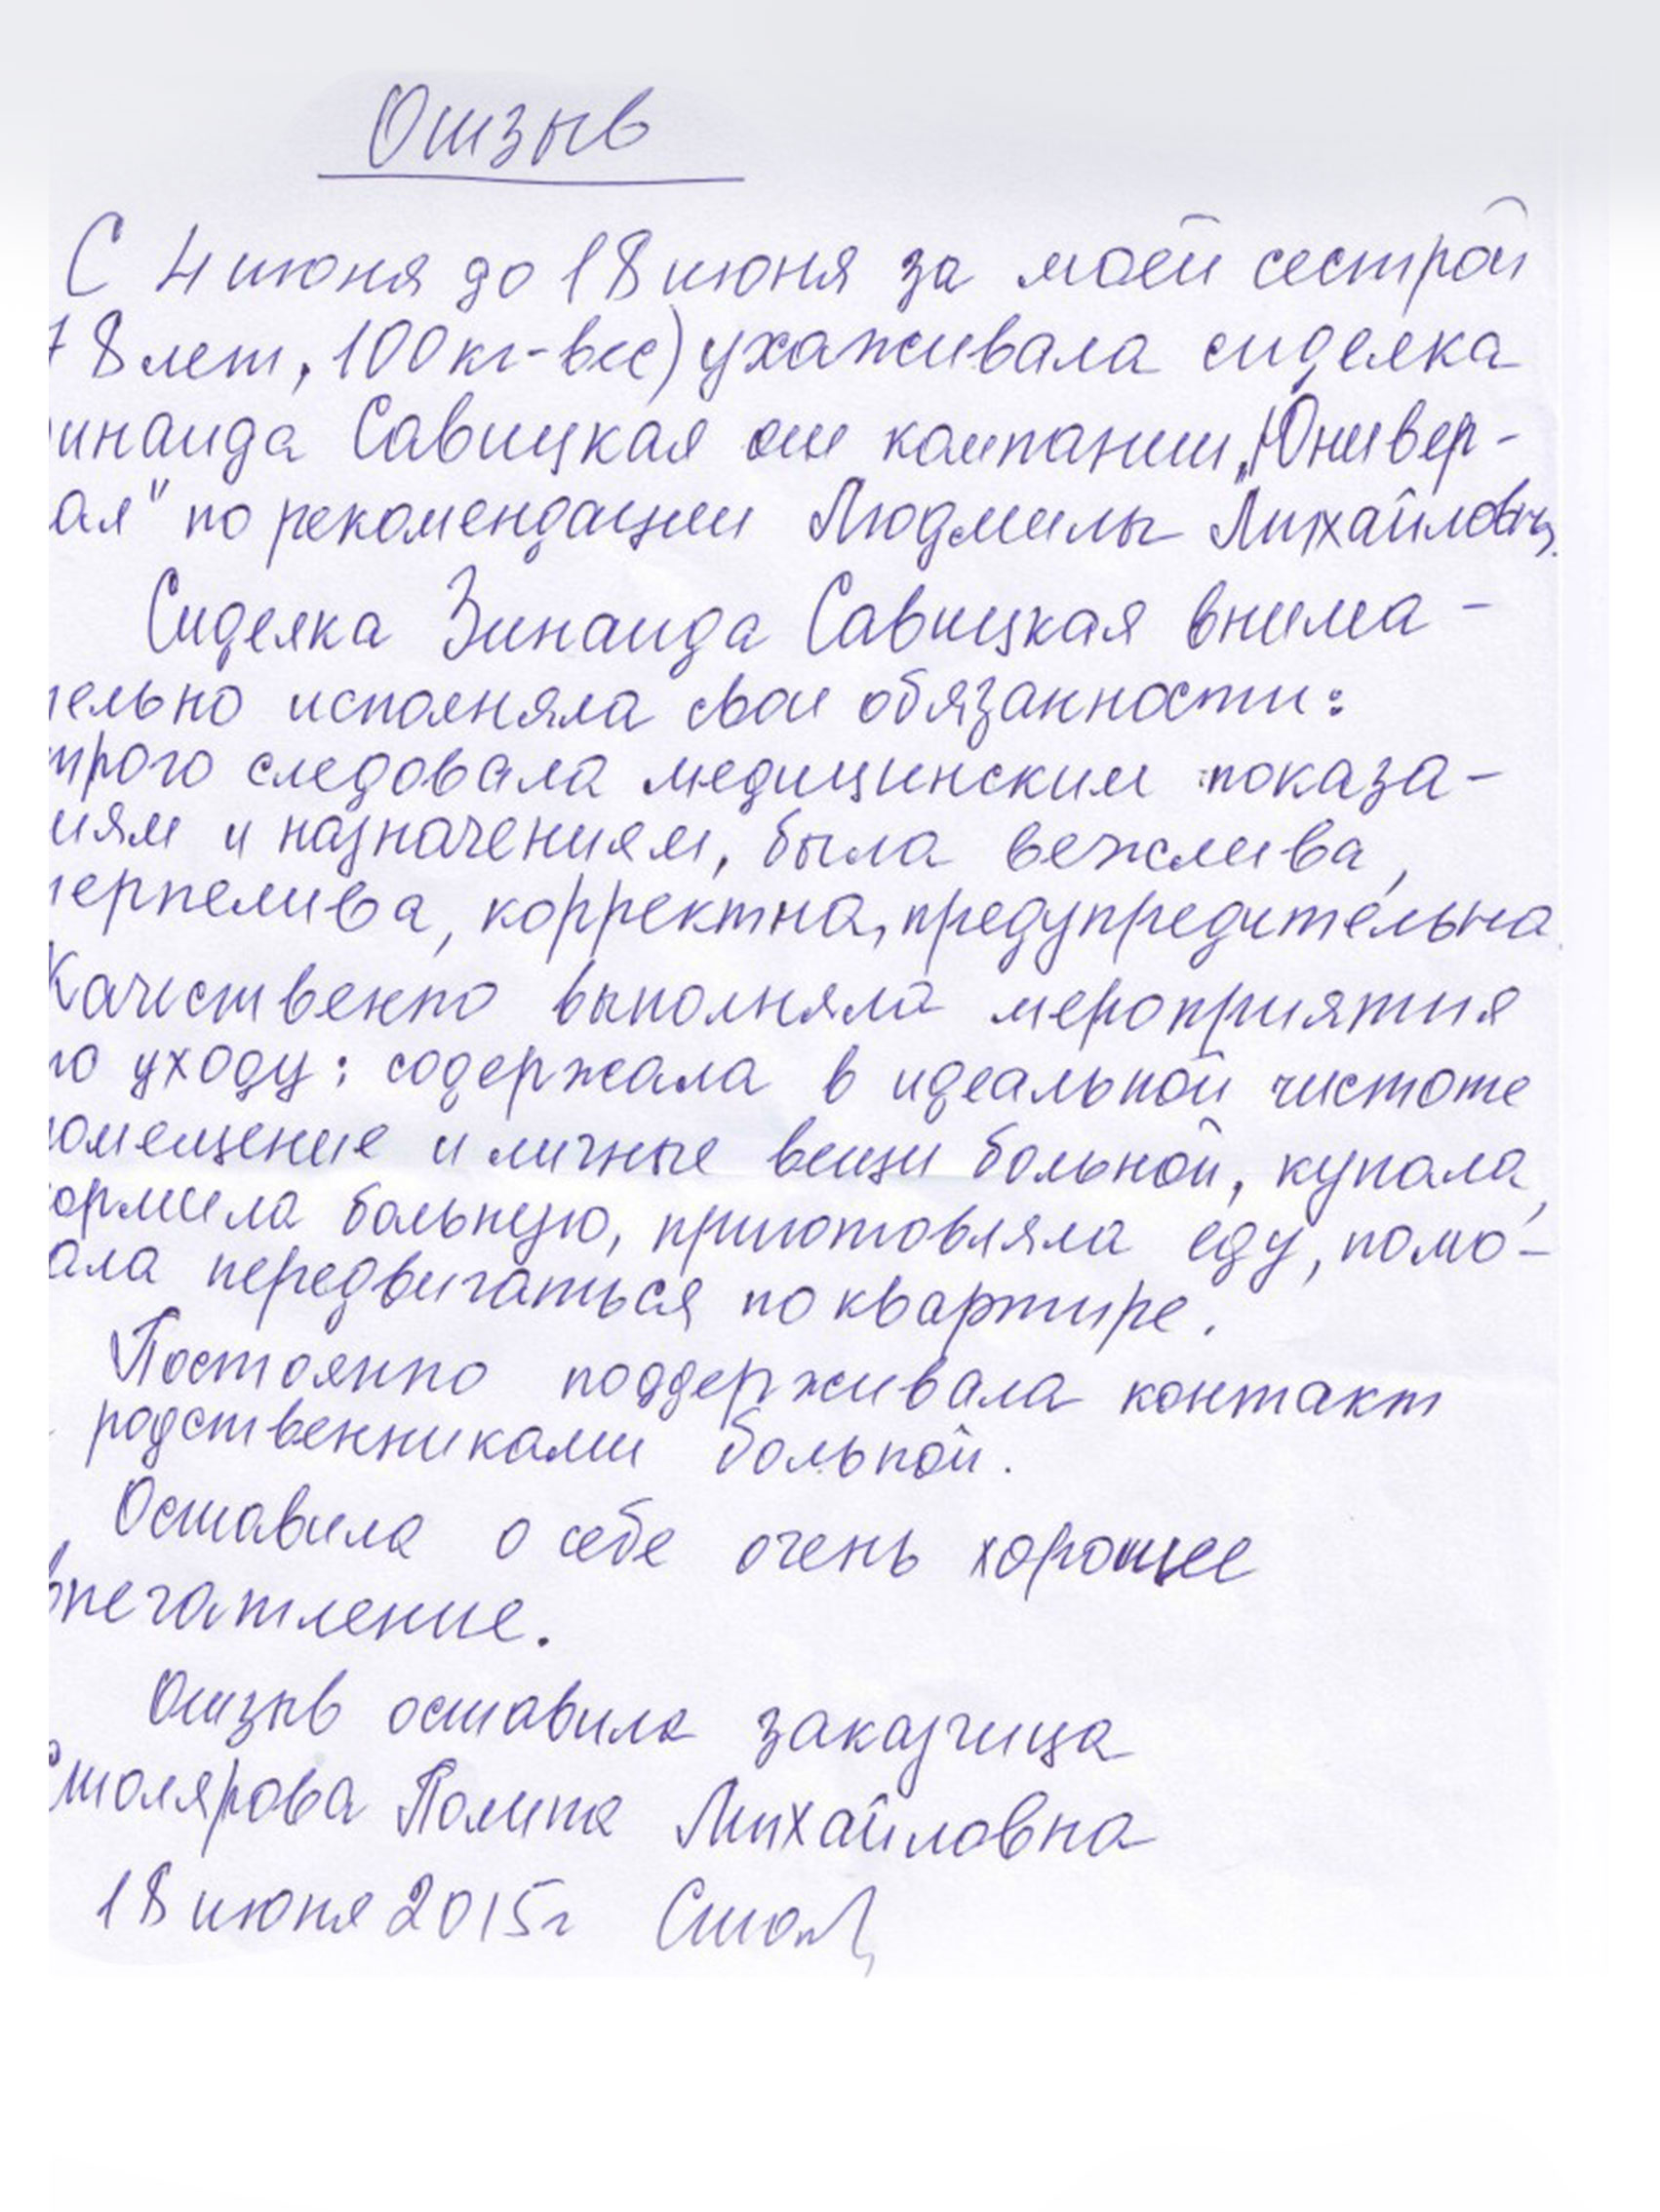 Отзыв
С 4 июня до 18 июня за моей сестрой
78 лет, 100 кг-вес) ухаживала сиделка
инаида Савицкая от компании „Юнивер-
ая" по рекомендации Людмилы Михайловны.
Сиделка Зинаида Савицкая внима-
тельно исполняла свои обязанности:
трого следовала медицинским показа-
иям и назначениям, была вежлива,
терпелива, корректна, предупредительна.
Качественно выполняла мероприятия
по уходу: содержала в идеальной чистоте
омещение и личные вещи больной, купала,
ормила больную, приготовляла еду, помо-
ала передвигаться по квартире.
Постоянно поддерживала контакт
родственниками больной.
Оставила о себе очень хорошее
впечатление.
Отзыв оставила заказчица
Столярова Полина Михайловна
18 июня 2015г Стол